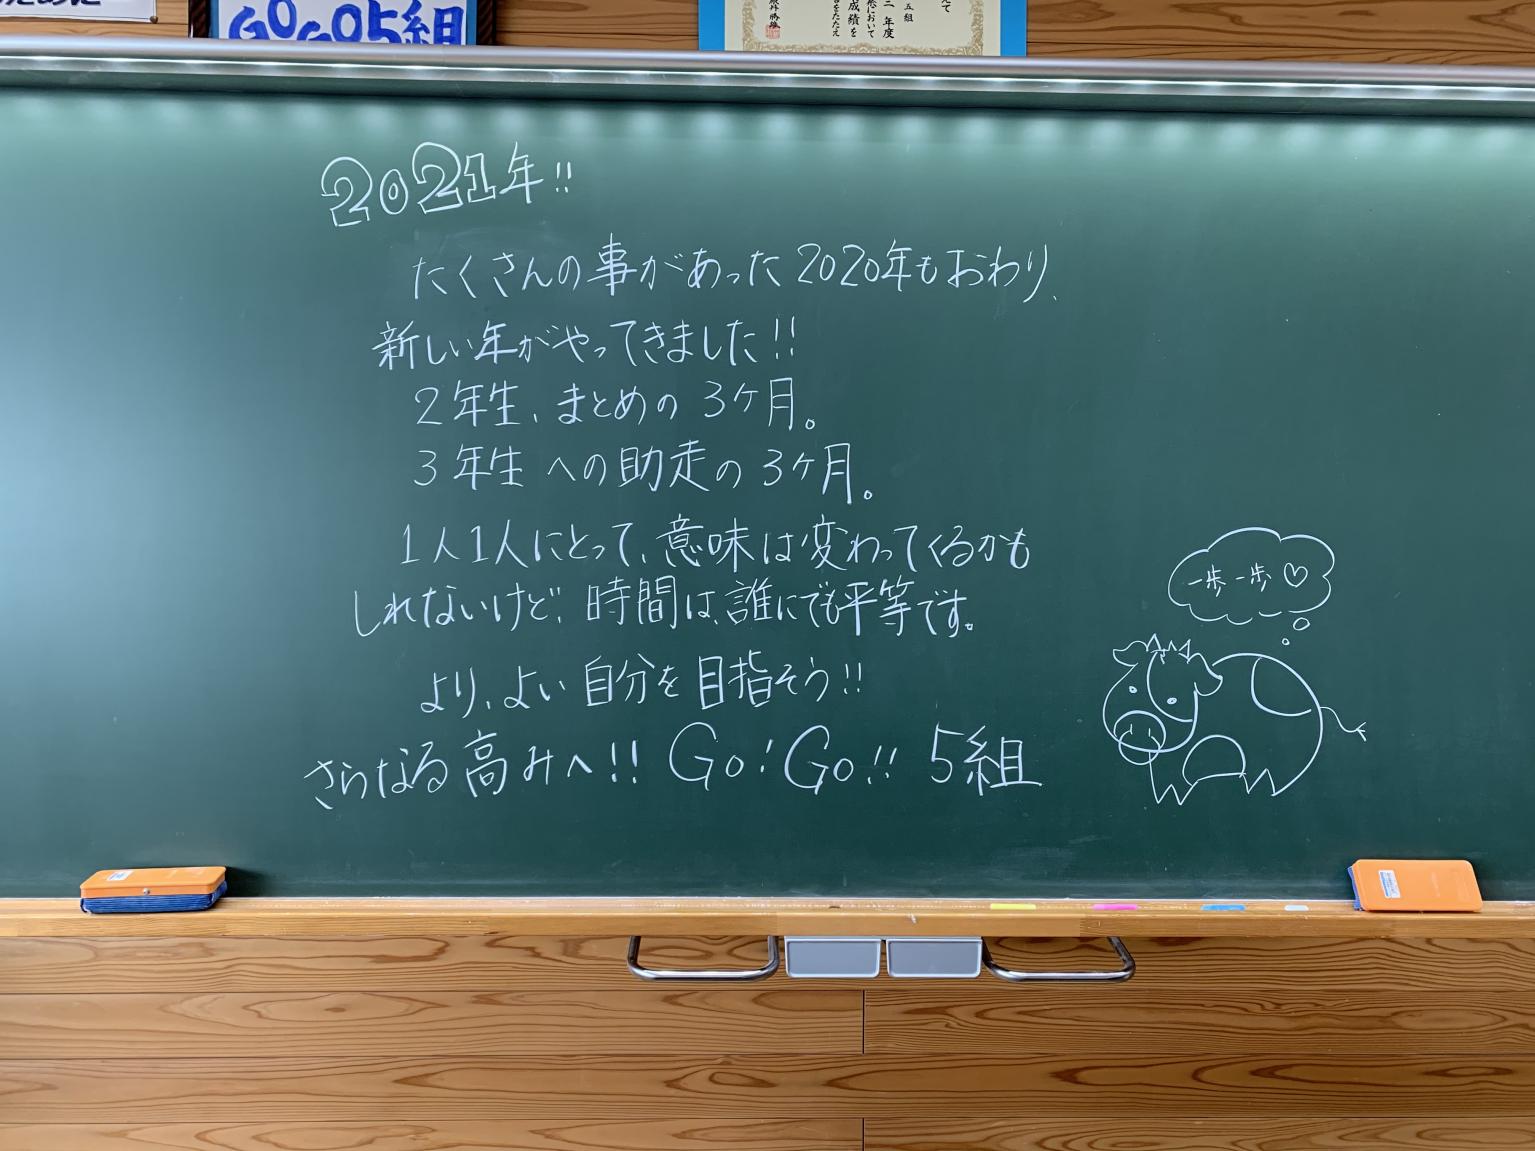 GOGO5組
2021年!!
たくさんの事があった2020年もおわり、
新しい年がやってきました!!
2年生、まとめの3ケ月。
3年生への助走の3ケ月。
1人1人にとって、意味は変わってくるかも
しれないけど、時間は、誰にでも平等です。
より、よい自分を目指そう!!
さらなる高みへ!! Go!Go!! 5組
一歩一歩♡